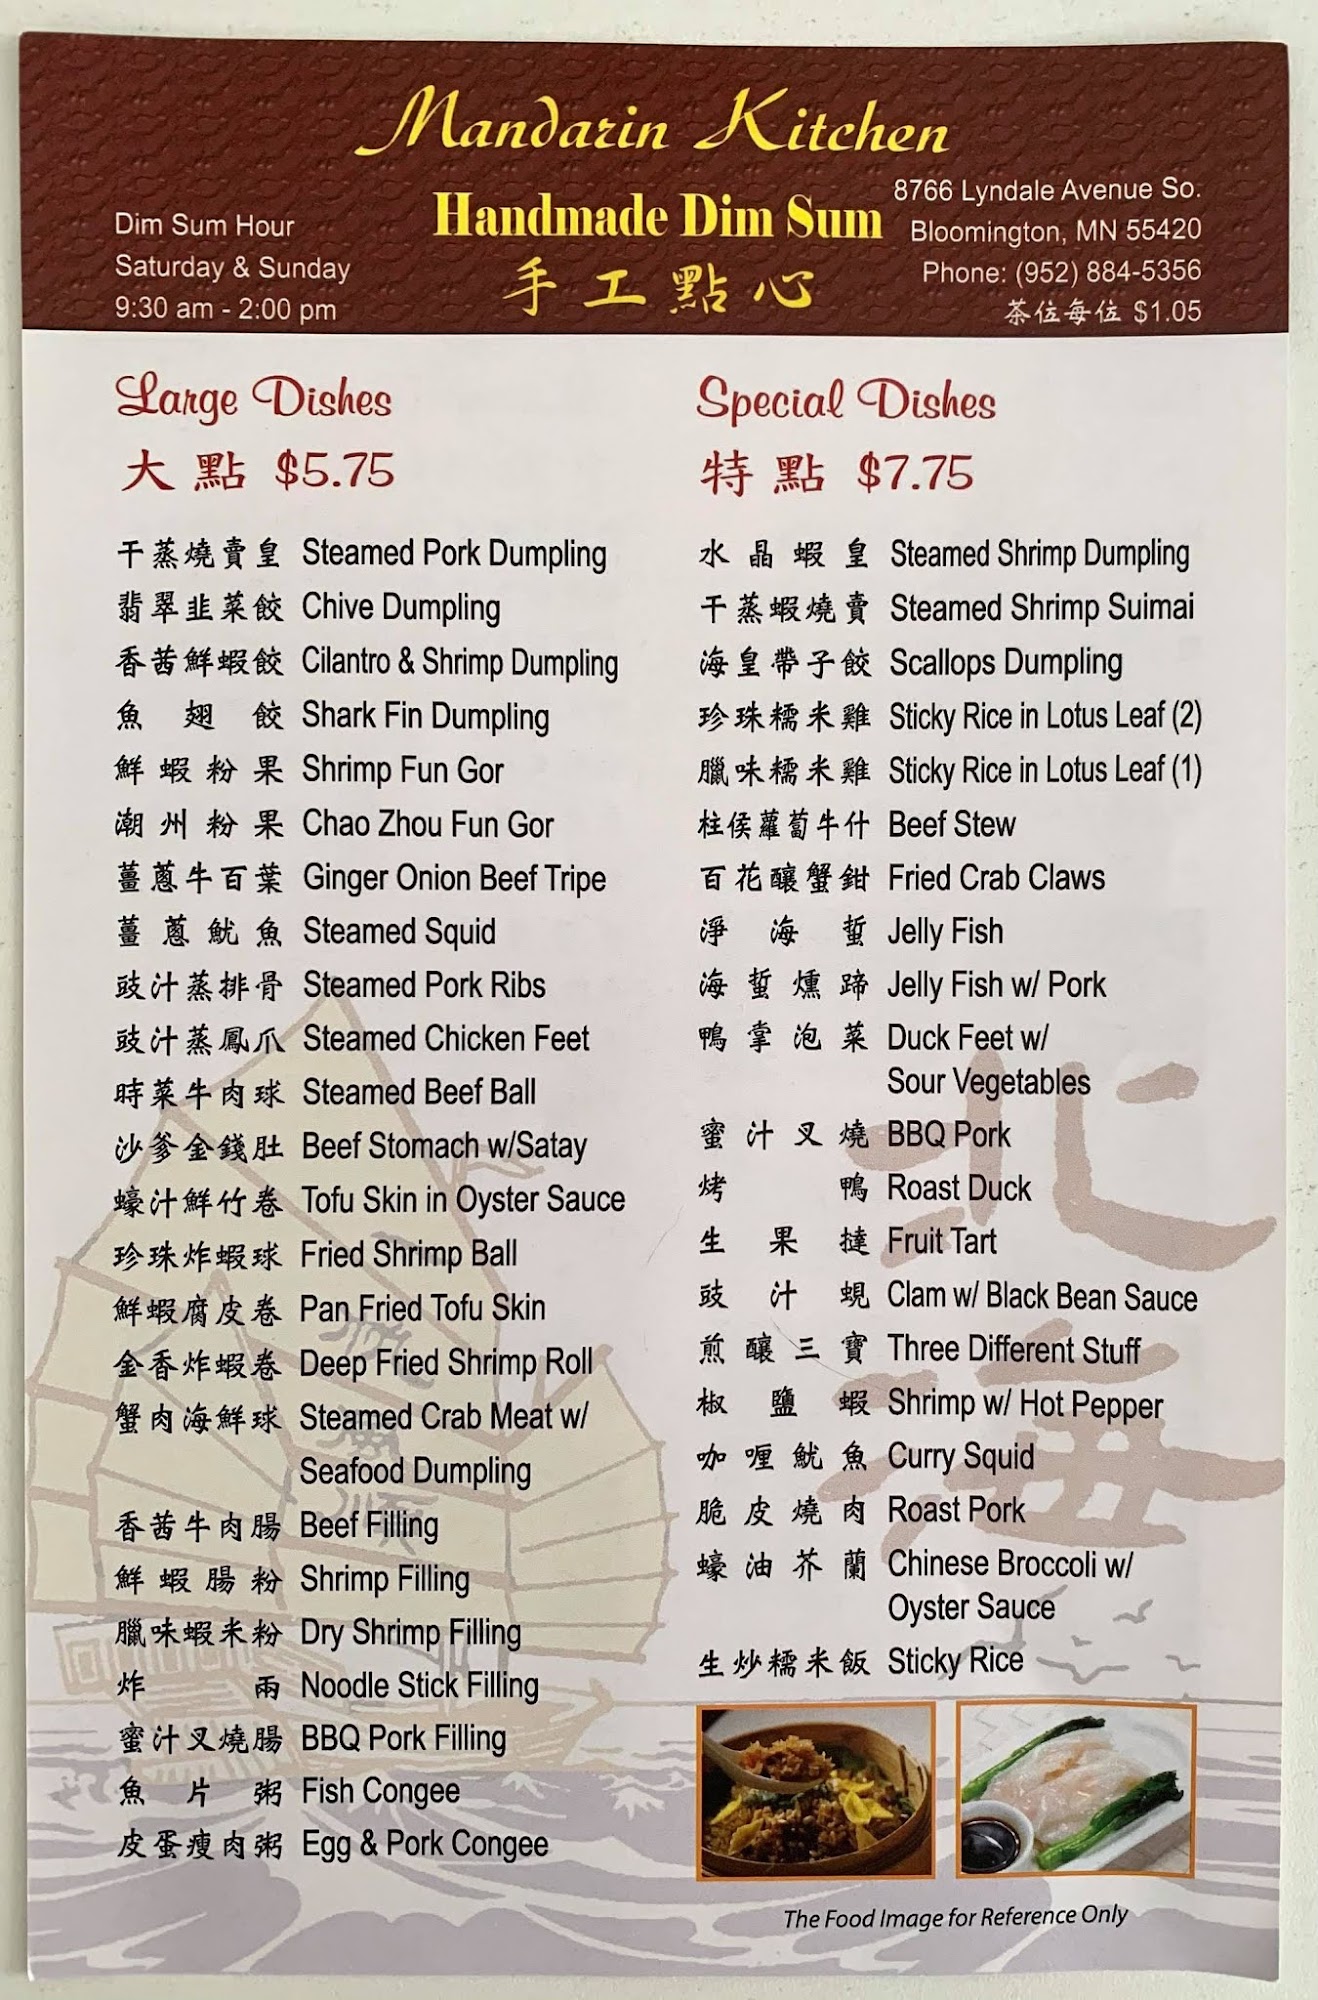 Mandarin Kitchen
Handmade Dim Sum
手工點心
Dim Sum Hour
Saturday & Sunday
9:30 am - 2:00 pm
8766 Lyndale Avenue So.
Bloomington, MN 55420
Phone: (952) 884-5356
茶位每位 $1.05
Large Dishes
大點 $5.75
干蒸燒賣皇 Steamed Pork Dumpling
翡翠韭菜餃 Chive Dumpling
香茜鮮蝦餃 Cilantro & Shrimp Dumpling
魚翅餃 Shark Fin Dumpling
鮮蝦粉果 Shrimp Fun Gor
潮州粉果 Chao Zhou Fun Gor
薑蔥牛百葉 Ginger Onion Beef Tripe
薑蔥魷魚 Steamed Squid
豉汁蒸排骨 Steamed Pork Ribs
豉汁蒸鳳爪 Steamed Chicken Feet
時菜牛肉球 Steamed Beef Ball
沙爹金錢肚 Beef Stomach w/Satay
蠔汁鮮竹卷 Tofu Skin in Oyster Sauce
珍珠炸蝦球 Fried Shrimp Ball
鮮蝦腐皮卷 Pan Fried Tofu Skin
金香炸蝦卷 Deep Fried Shrimp Roll
蟹肉海鮮球 Steamed Crab Meat w/
Seafood Dumpling
香茜牛肉腸 Beef Filling
鮮蝦腸粉 Shrimp Filling
臘味蝦米粉 Dry Shrimp Filling
炸兩 Noodle Stick Filling
蜜汁叉燒腸 BBQ Pork Filling
魚片粥 Fish Congee
皮蛋瘦肉粥 Egg & Pork Congee
Special Dishes
特點 $7.75
水晶蝦皇 Steamed Shrimp Dumpling
干蒸蝦燒賣 Steamed Shrimp Suimai
海皇帶子餃 Scallops Dumpling
珍珠糯米雞 Sticky Rice in Lotus Leaf (2)
臘味糯米雞 Sticky Rice in Lotus Leaf (1)
柱侯蘿蔔牛什 Beef Stew
百花釀蟹鉗 Fried Crab Claws
淨海蜇 Jelly Fish
海蜇燻蹄 Jelly Fish w/ Pork
鴨掌泡菜 Duck Feet w/
Sour Vegetables
蜜汁叉燒 BBQ Pork
烤鴨 Roast Duck
生果撻 Fruit Tart
豉汁蜆 Clam w/ Black Bean Sauce
煎釀三寶 Three Different Stuff
椒鹽蝦 Shrimp w/ Hot Pepper
咖喱魷魚 Curry Squid
脆皮燒肉 Roast Pork
蠔油芥蘭 Chinese Broccoli w/
Oyster Sauce
生炒糯米飯 Sticky Rice
北海
The Food Image for Reference Only